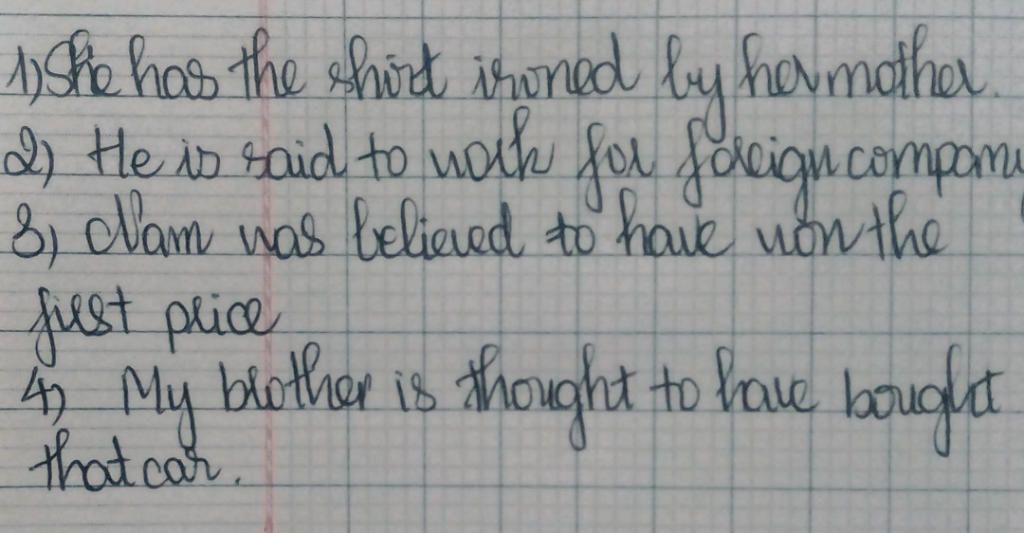 1) She has the shirt ironed by her mother.
2) He is said to work for foreign company
3) Nam was believed to have won the
first price
4) My brother is thought to have bought
that car.